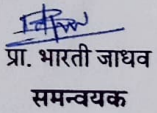 प्रा. भारती जाधव
समन्वयक